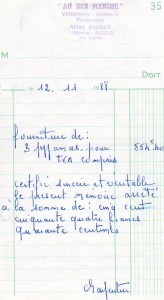 "AU BON MARCHÉ"
35
M
DOIT
12. 11 1988
fourniture de:
3 pyjamas pour 554,40
TVA compris
certifié sincère et véritable
le présent mémoire arrêté
à la somme de: cinq cent
cinquante quatre francs
quarante centimes